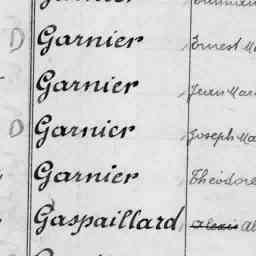 D Garnier Ernest
Garnier Jean
D Garnier Joseph
Garnier Théodore
Gaspaillard Alexis